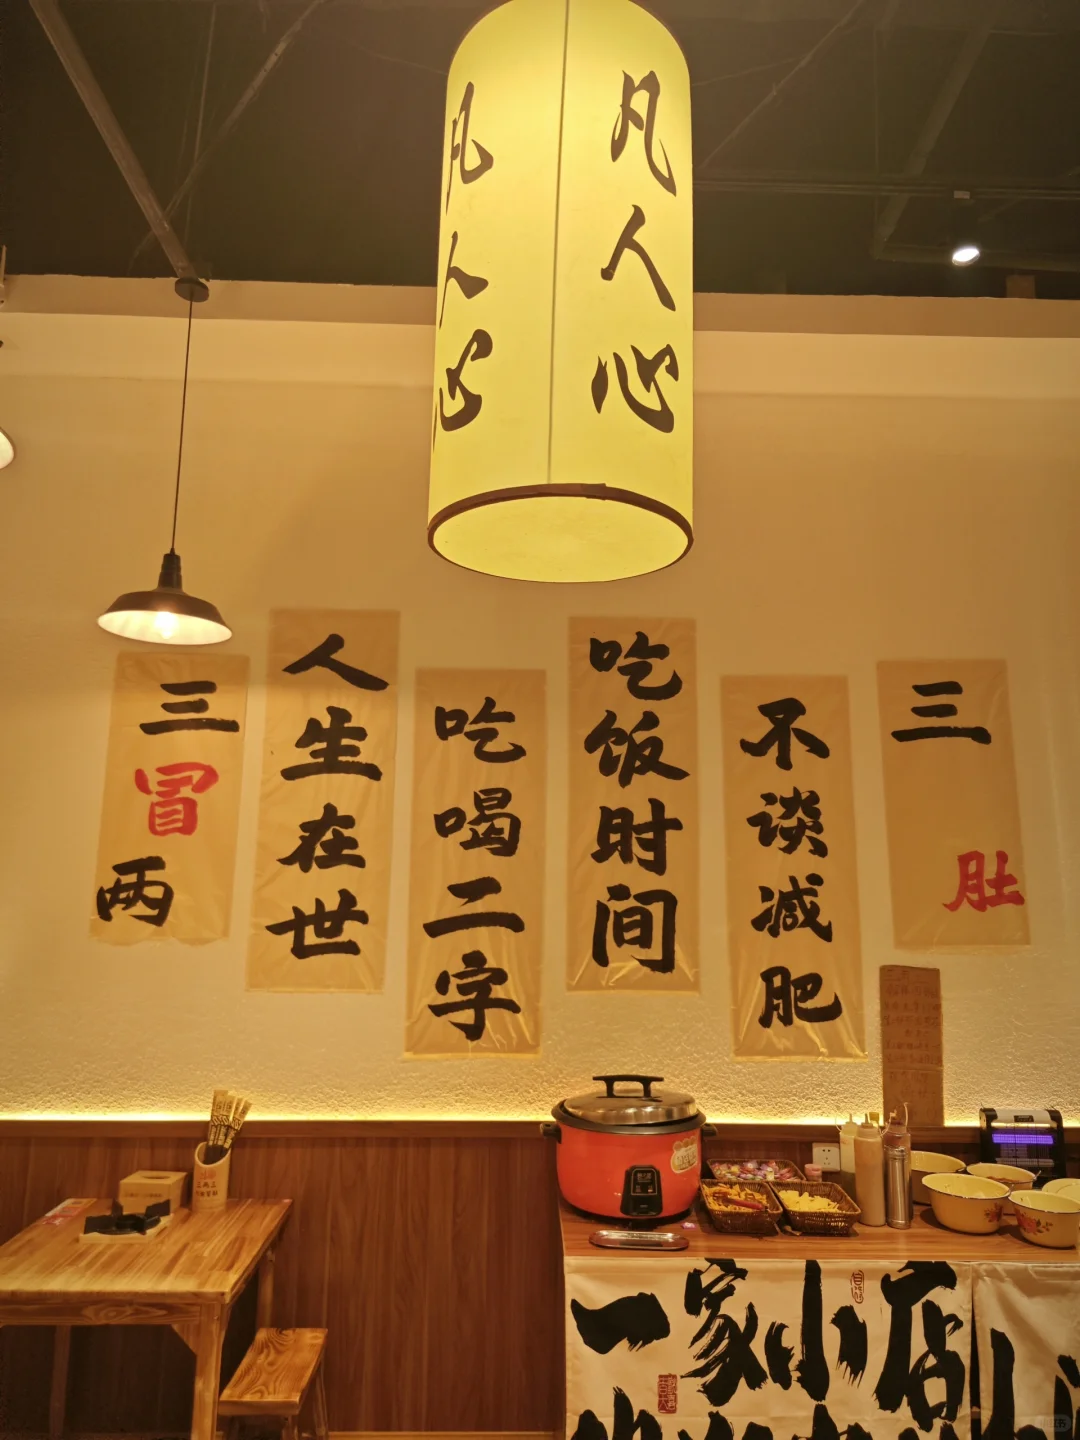 凡人心
凡人心
三冒两
人生在世
吃喝二字
吃饭时间
不谈减肥
三肚
一家小店